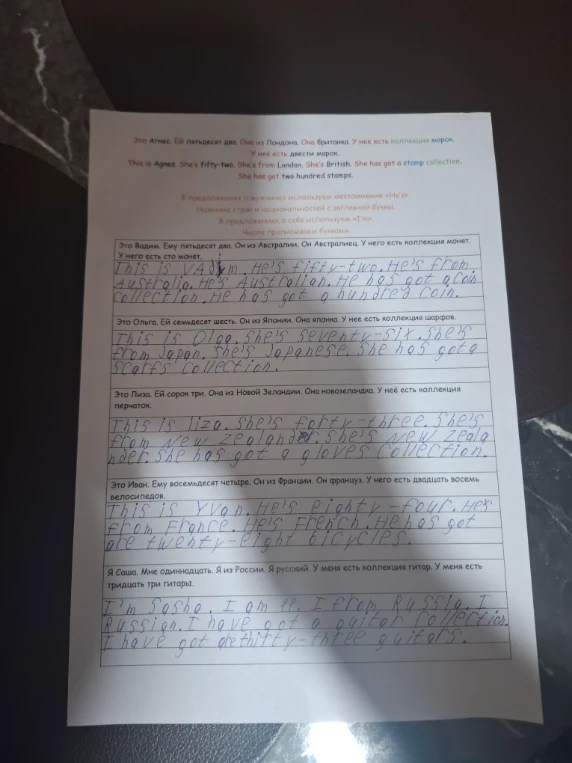 Это Агнес. Ей пятьдесят два. Она из Лондона. Она британка. У нее есть коллекция марок.
У неё есть двести марок.
This is Agnes. She's fifty-two. She's from London. She's British. She has got a stamp collection.
She has got two hundred stamps.
В предложениях о мужчинах используем местоимение «He's».
Названия стран и национальностей с заглавной буквы.
В предложениях о себе используем «I'm».
Числа прописываем буквами.
Это Вадим. Ему пятьдесят два. Он из Австралии. Он Австралиец. У него есть коллекция монет.
У него есть сто монет.
This is VAdym. He's fifty-two. He's from
Australia. He's Australian. He has got a coin
collection. He has got a hundred coin.
Это Ольга. Ей семьдесят шесть. Она из Японии. Она японка. У нее есть коллекция шарфов.
This is Olga. She's seventy-six. She's
from Japan. She's Japanese. She has got a
scarfs collection.
Это Лиза. Ей сорок три. Она из Новой Зеландии. Она новозеландка. У неё есть коллекция
перчаток.
This is liza. She's forty-three. She's
from New Zealand. She's New Zeala
nder. She has got a gloves collection.
Это Иван. Ему восемьдесят четыре. Он из Франции. Он француз. У него есть двадцать восемь
велосипедов.
This is Yvan. He's eighty-four. He's
from France. He's French. He has got
are twenty-eight bicycles.
Я Саша. Мне одиннадцать. Я из России. Я русский. У меня есть коллекция гитар. У меня есть
тридцать три гитары.
I'm Sasha. I am 11. I from Russia. I
Russian. I have got a guitar collection.
I have got are thirty-three guitars.